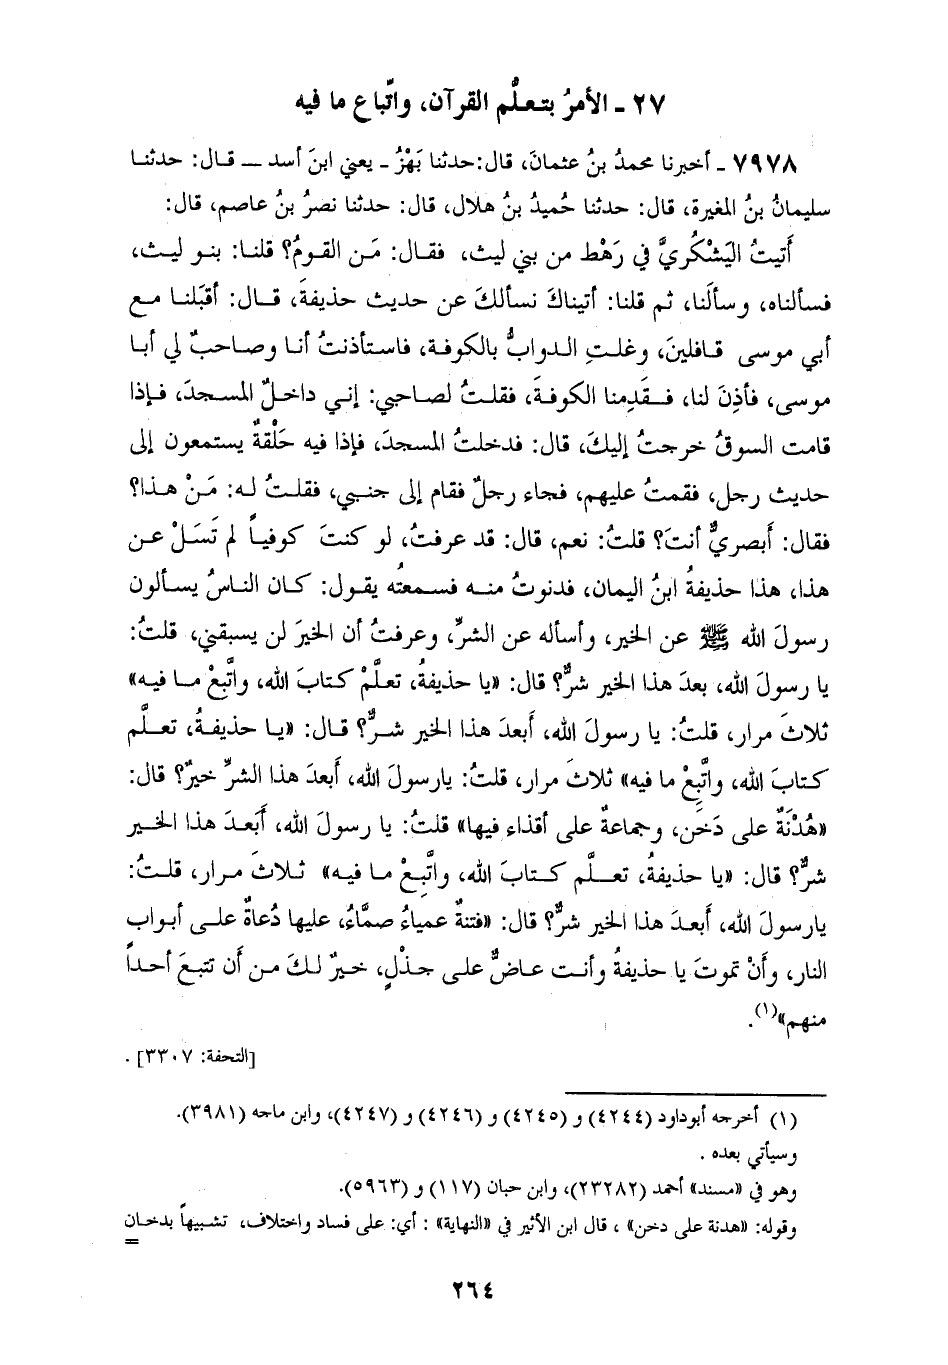 ٢٧ ـ الأمرُ بتعلُّم القرآن، واتِّباع ما فيه
٧٩٧٨ ـ أخبرنا محمدُ بنُ عثمانَ، قال: حدثنا بَهْزٌ ـ يعني ابنَ أسد ـ قال: حدثنا
سليمانُ بنُ المغيرة، قال: حدثنا حُميدُ بنُ هلال، قال: حدثنا نصرُ بنُ عاصم، قال:
أَتيتُ اليَشْكُريَّ في رَهْط من بني ليث، فقال: مَن القومُ؟ قلنا: بنو ليث،
فسألناه، وسألَنا، ثم قلنا: أتيناكَ نسألكَ عن حديث حذيفةَ، قال: أقبَلنا مع
أبي موسى قافلينَ، وغلتِ الدوابُّ بالكوفة، فاستأذنتُ أنا وصاحبٌ لي أبا
موسى، فأذِنَ لنا، فقَدِمنا الكوفةَ، فقلتُ لصاحبي: إني داخلٌ المسجدَ، فإذا
قامت السوقُ خرجتُ إليكَ، قال: فدخلتُ المسجدَ، فإذا فيه حَلْقةٌ يستمعون إلى
حديث رجل، فقمتُ عليهم، فجاء رجلٌ فقام إلى جنبي، فقلتُ له: مَنْ هذا؟
فقال: أَبصريٌّ أنتَ؟ قلتُ: نعم، قال: قد عرفتُ، لو كنتَ كوفياً لم تَسَلْ عن
هذا، هذا حذيفةُ ابنُ اليمان، فدنوتُ منه فسمعتُه يقول: كان الناسُ يسألون
رسولَ الله ﷺ عن الخير، وأسأله عن الشرِّ، وعرفتُ أن الخيرَ لن يسبقني، قلتُ:
يا رسولَ الله، بعدَ هذا الخير شرٌّ؟ قال: «يا حذيفةُ، تعلَّمْ كتابَ الله، واتَّبِعْ ما فيه»
ثلاثَ مرار، قلتُ: يا رسولَ الله، أَبعدَ هذا الخير شرٌّ؟ قال: «يا حذيفةُ، تعلَّم
كتابَ الله، واتَّبِعْ ما فيه» ثلاثَ مرار، قلتُ: يارسولَ الله، أَبعدَ هذا الشرِّ خيرٌ؟ قال:
«هُدْنَةٌ على دَخَنٍ، وجماعةٌ على أقذاء فيها» قلتُ: يا رسولَ الله، أَبَعدَ هذا الخير
شرٌّ؟ قال: «يا حذيفةُ، تعلَّم كتابَ الله، واتَّبِعْ ما فيه» ثلاثَ مرار، قلتُ:
يارسولَ الله، أَبعدَ هذا الخير شرٌّ؟ قال: «فتنةٌ عمياءُ صمَّاءُ، عليها دُعاةٌ على أبواب
النار، وأَنْ تموتَ يا حذيفةُ وأنت عاضٌّ على جذْلٍ، خيرٌ لكَ من أن تتبعَ أحداً
منهم»(١).
[التحفة: ٣٣٠٧] .
(١) أخرجه أبوداود (٤٢٤٤) و (٤٢٤٥) و (٤٢٤٦) و (٤٢٤٧)، وابن ماجه (٣٩٨١).
وسيأتي بعده .
وهو في «مسند» أحمد (٢٣٢٨٢)، وابن حبان (١١٧) و (٥٩٦٣).
وقوله: «هدنة على دخن» ، قال ابن الأثير في «النهاية» : أي: على فساد واختلاف، تشبيهاً بدخان
=
٢٦٤